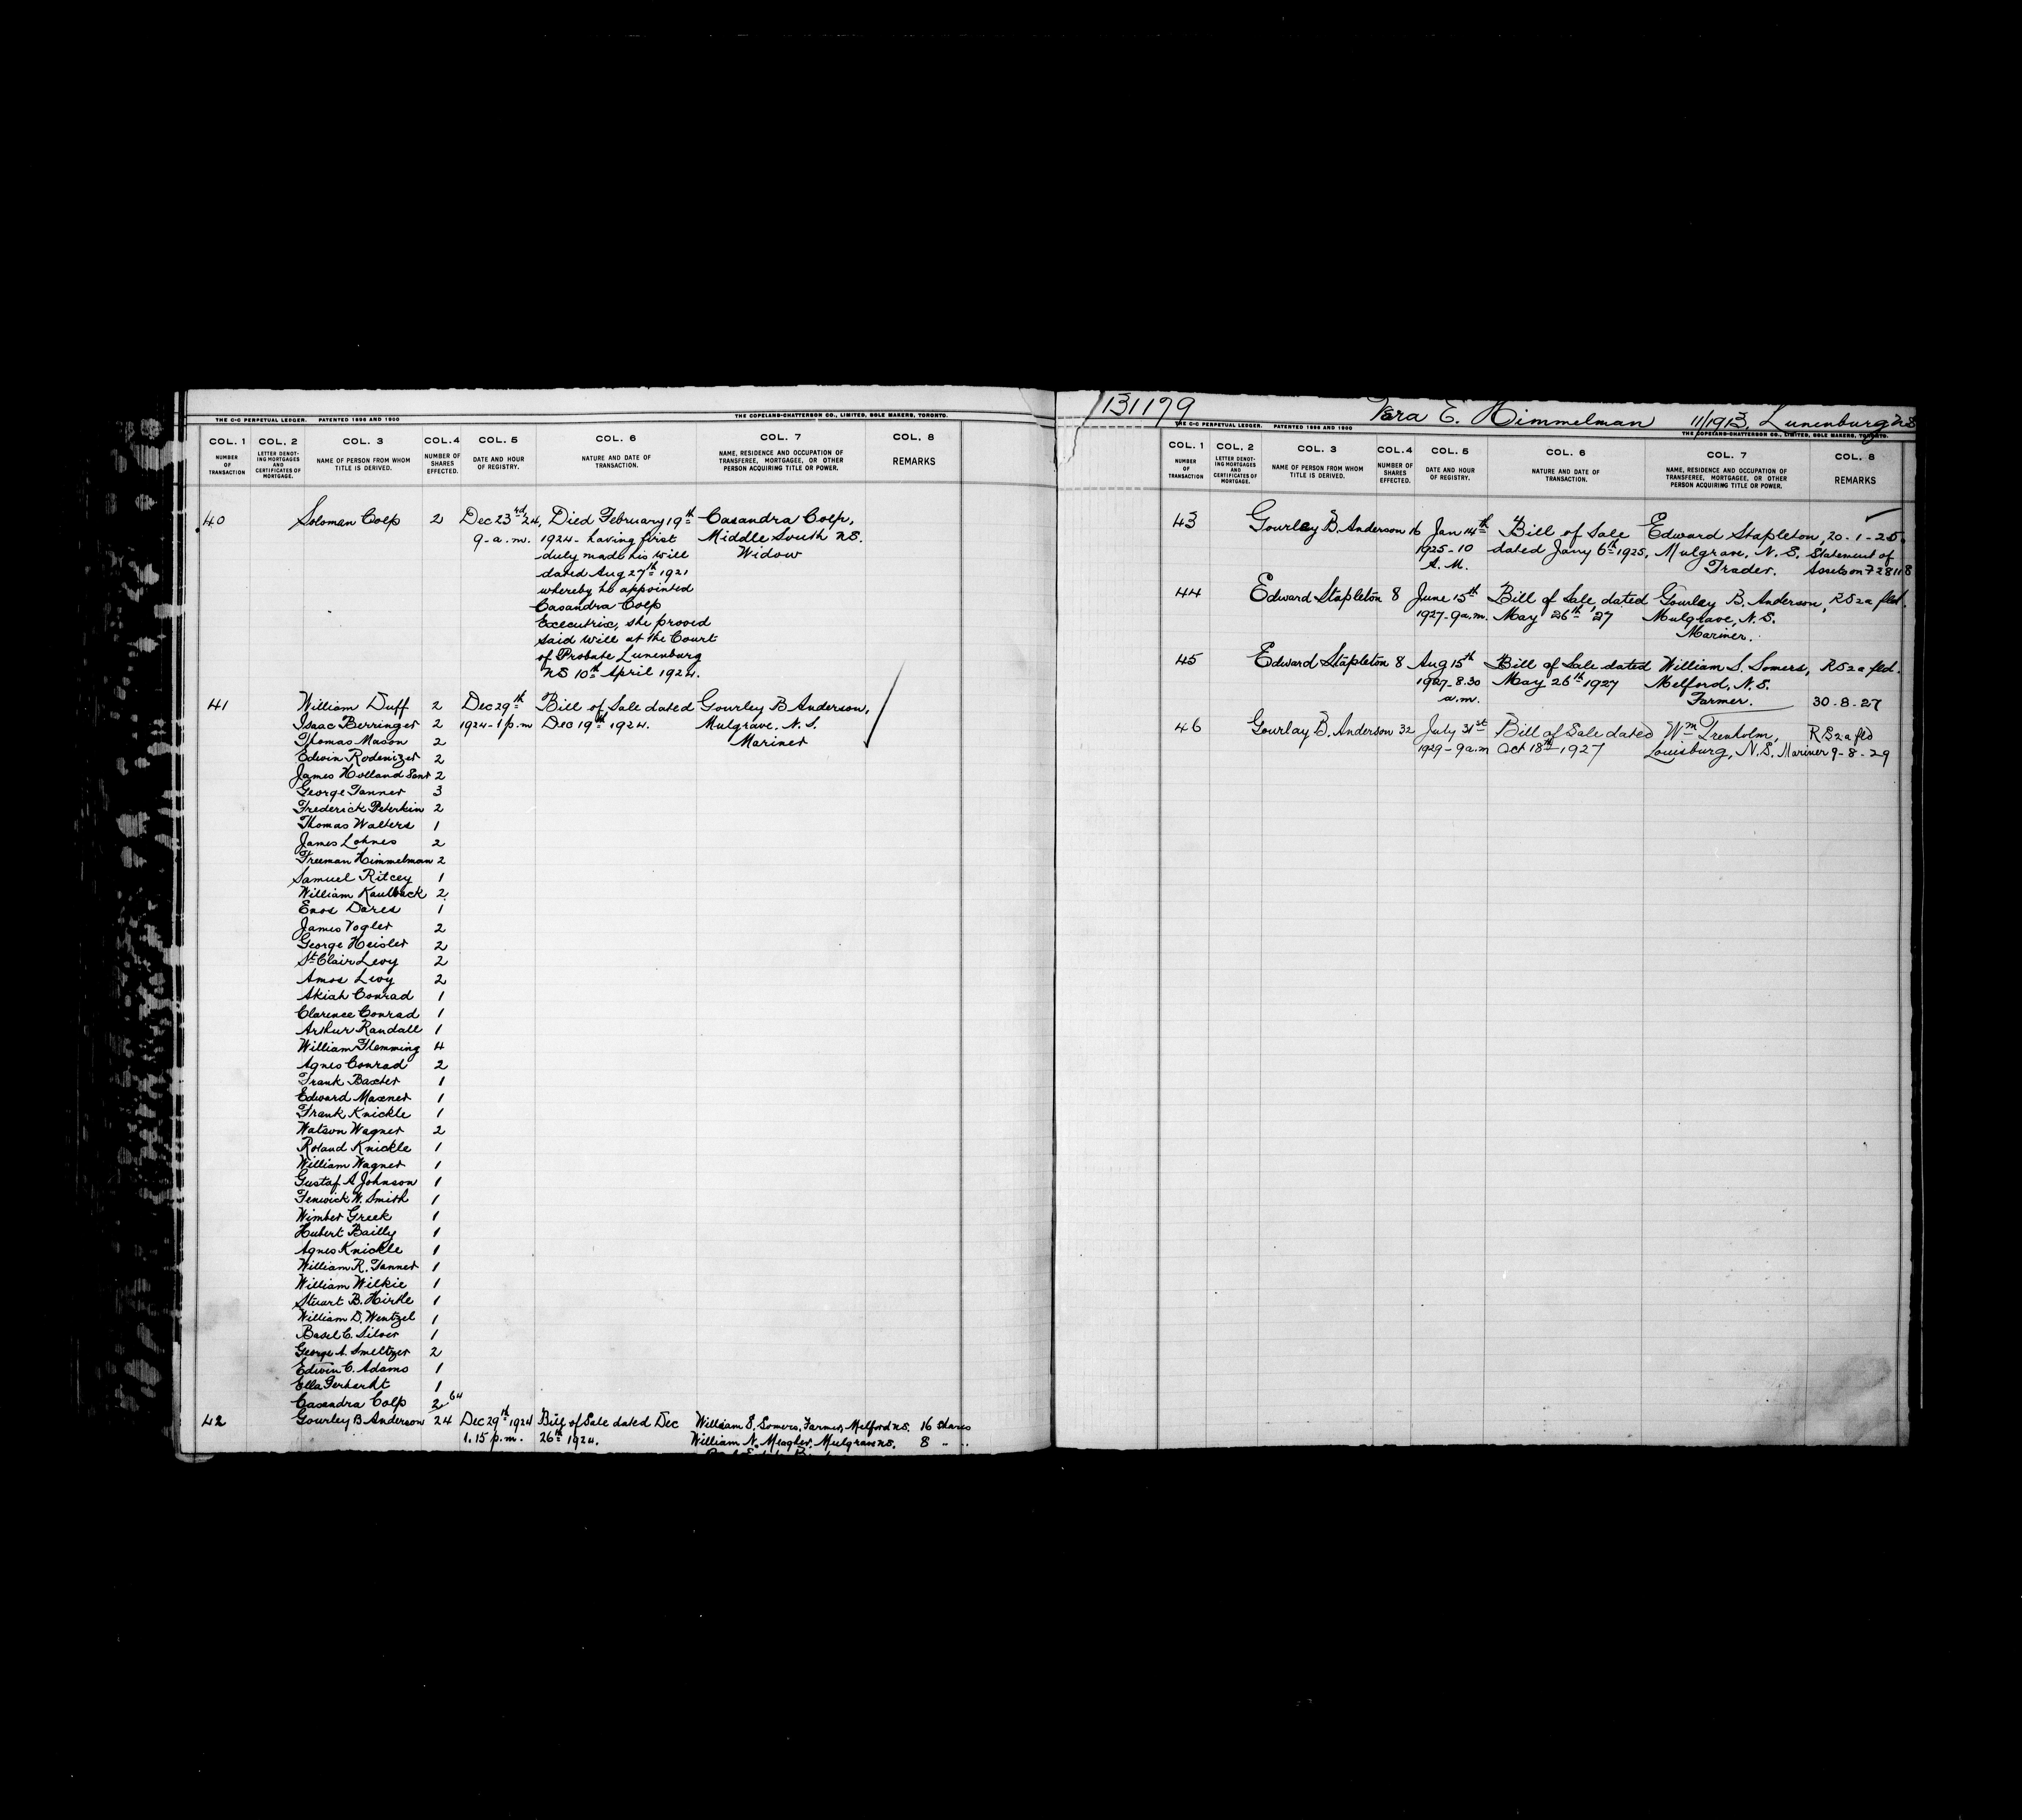 THE C-C PERPETUAL LEDGER. PATENTED 1896 AND 1900 THE COPELAND-CHATTERSON CO., LIMITED, SOLE MAKERS, TORONTO.
COL. 1 COL. 2 COL. 3 COL. 4 COL. 5 COL. 6 COL. 7 COL. 8
NUMBER OF TRANSACTION
LETTER DENOT-ING MORTGAGES AND CERTIFICATES OF MORTGAGE.
NAME OF PERSON FROM WHOM TITLE IS DERIVED.
NUMBER OF SHARES EFFECTED.
DATE AND HOUR OF REGISTRY.
NATURE AND DATE OF TRANSACTION.
NAME, RESIDENCE AND OCCUPATION OF TRANSFEREE, MORTGAGEE, OR OTHER PERSON ACQUIRING TITLE OR POWER.
REMARKS
40 Soloman Colp 2 Dec 23rd 24, Died February 19th Casandra Colp,
9-a.m. 1924- having first Middle South NS.
duly made his will Widow
dated Aug 27th 1921
whereby he appointed
Casandra Colp
Executrix, she proved
said will at the Court
of Probate Lunenburg
NS 10th April 1924.
41 William Duff 2 Dec 29th Bill of Sale dated Gourley B Anderson,
Isaac Berringer 2 1924-1 p.m Dec 19th 1924. Mulgrave. N.S.
Thomas Mason 2 Mariner
Edwin Rodenizer 2
James Holland Senr 2
George Tanner 3
Frederick Peterkin 2
Thomas Walters 1
James Lohnes 2
Freeman Himmelman 2
Samuel Ritcey 1
William Kaulback 2
Enos Dares 1
James Vogler 2
George Heisler 2
St Clair Levy 2
Amos Levy 2
Akiah Conrad 1
Clarence Conrad 1
Arthur Randall 1
William Flemming 4
Agnes Conrad 2
Frank Baxter 1
Edward Maxner 1
Frank Knickle 1
Watson Wagner 2
Roland Knickle 1
William Wagner 1
Gustaf A Johnson 1
Fenwick W. Smith 1
Wimber Greek 1
Hubert Bailly 1
Agnes Knickle 1
William R. Tanner 1
William Wilkie 1
Stuart B. Hirtle 1
William D. Wentzel 1
Basel C. Silver 1
George A. Smeltzer 2
Edwin C. Adams 1
Ella Gerhardt 1
Casandra Colp 2 64
42 Gourley B Anderson 24 Dec 29th 1924 Bill of Sale dated Dec William S. Somers, Farmer, Melford NS. 16 Shares
1.15 p.m. 26th 1924. William N. Meagher, Mulgrave NS. 8 " "
131179 Vera E. Himmelman 11/1913, Lunenburg NS
THE C-C PERPETUAL LEDGER. PATENTED 1896 AND 1900 THE COPELAND-CHATTERSON CO., LIMITED, SOLE MAKERS, TORONTO.
COL. 1 COL. 2 COL. 3 COL. 4 COL. 5 COL. 6 COL. 7 COL. 8
NUMBER OF TRANSACTION
LETTER DENOT-ING MORTGAGES AND CERTIFICATES OF MORTGAGE.
NAME OF PERSON FROM WHOM TITLE IS DERIVED.
NUMBER OF SHARES EFFECTED.
DATE AND HOUR OF REGISTRY.
NATURE AND DATE OF TRANSACTION.
NAME, RESIDENCE AND OCCUPATION OF TRANSFEREE, MORTGAGEE, OR OTHER PERSON ACQUIRING TITLE OR POWER.
REMARKS
43 Gourley B. Anderson 16 Jan 14th Bill of Sale Edward Stapleton, 20-1-25.
1925-10 dated Jany 6th 1925, Mulgrave, N.S. Statement of
A.M. Trader. Assets on 728118
44 Edward Stapleton 8 June 15th Bill of Sale, dated Gourley B. Anderson, RS2a fld.
1927-9 a.m. May 26th '27 Mulgrave, N.S.
Mariner.
45 Edward Stapleton 8 Aug 15th Bill of Sale dated William S. Somers, RS2a fld.
1927-8.30 May 26th 1927 Melford, N.S.
a.m. Farmer. 30-8-27
46 Gourlay B. Anderson 32 July 31st Bill of Sale dated Wm Trenholm, RS2a fld
1929-9 a.m Oct 18th 1927 Louisburg, N.S. Mariner 9-8-29